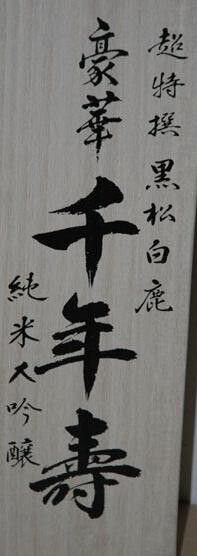 超特撰 黒松白鹿
豪華千年壽
純米大吟醸